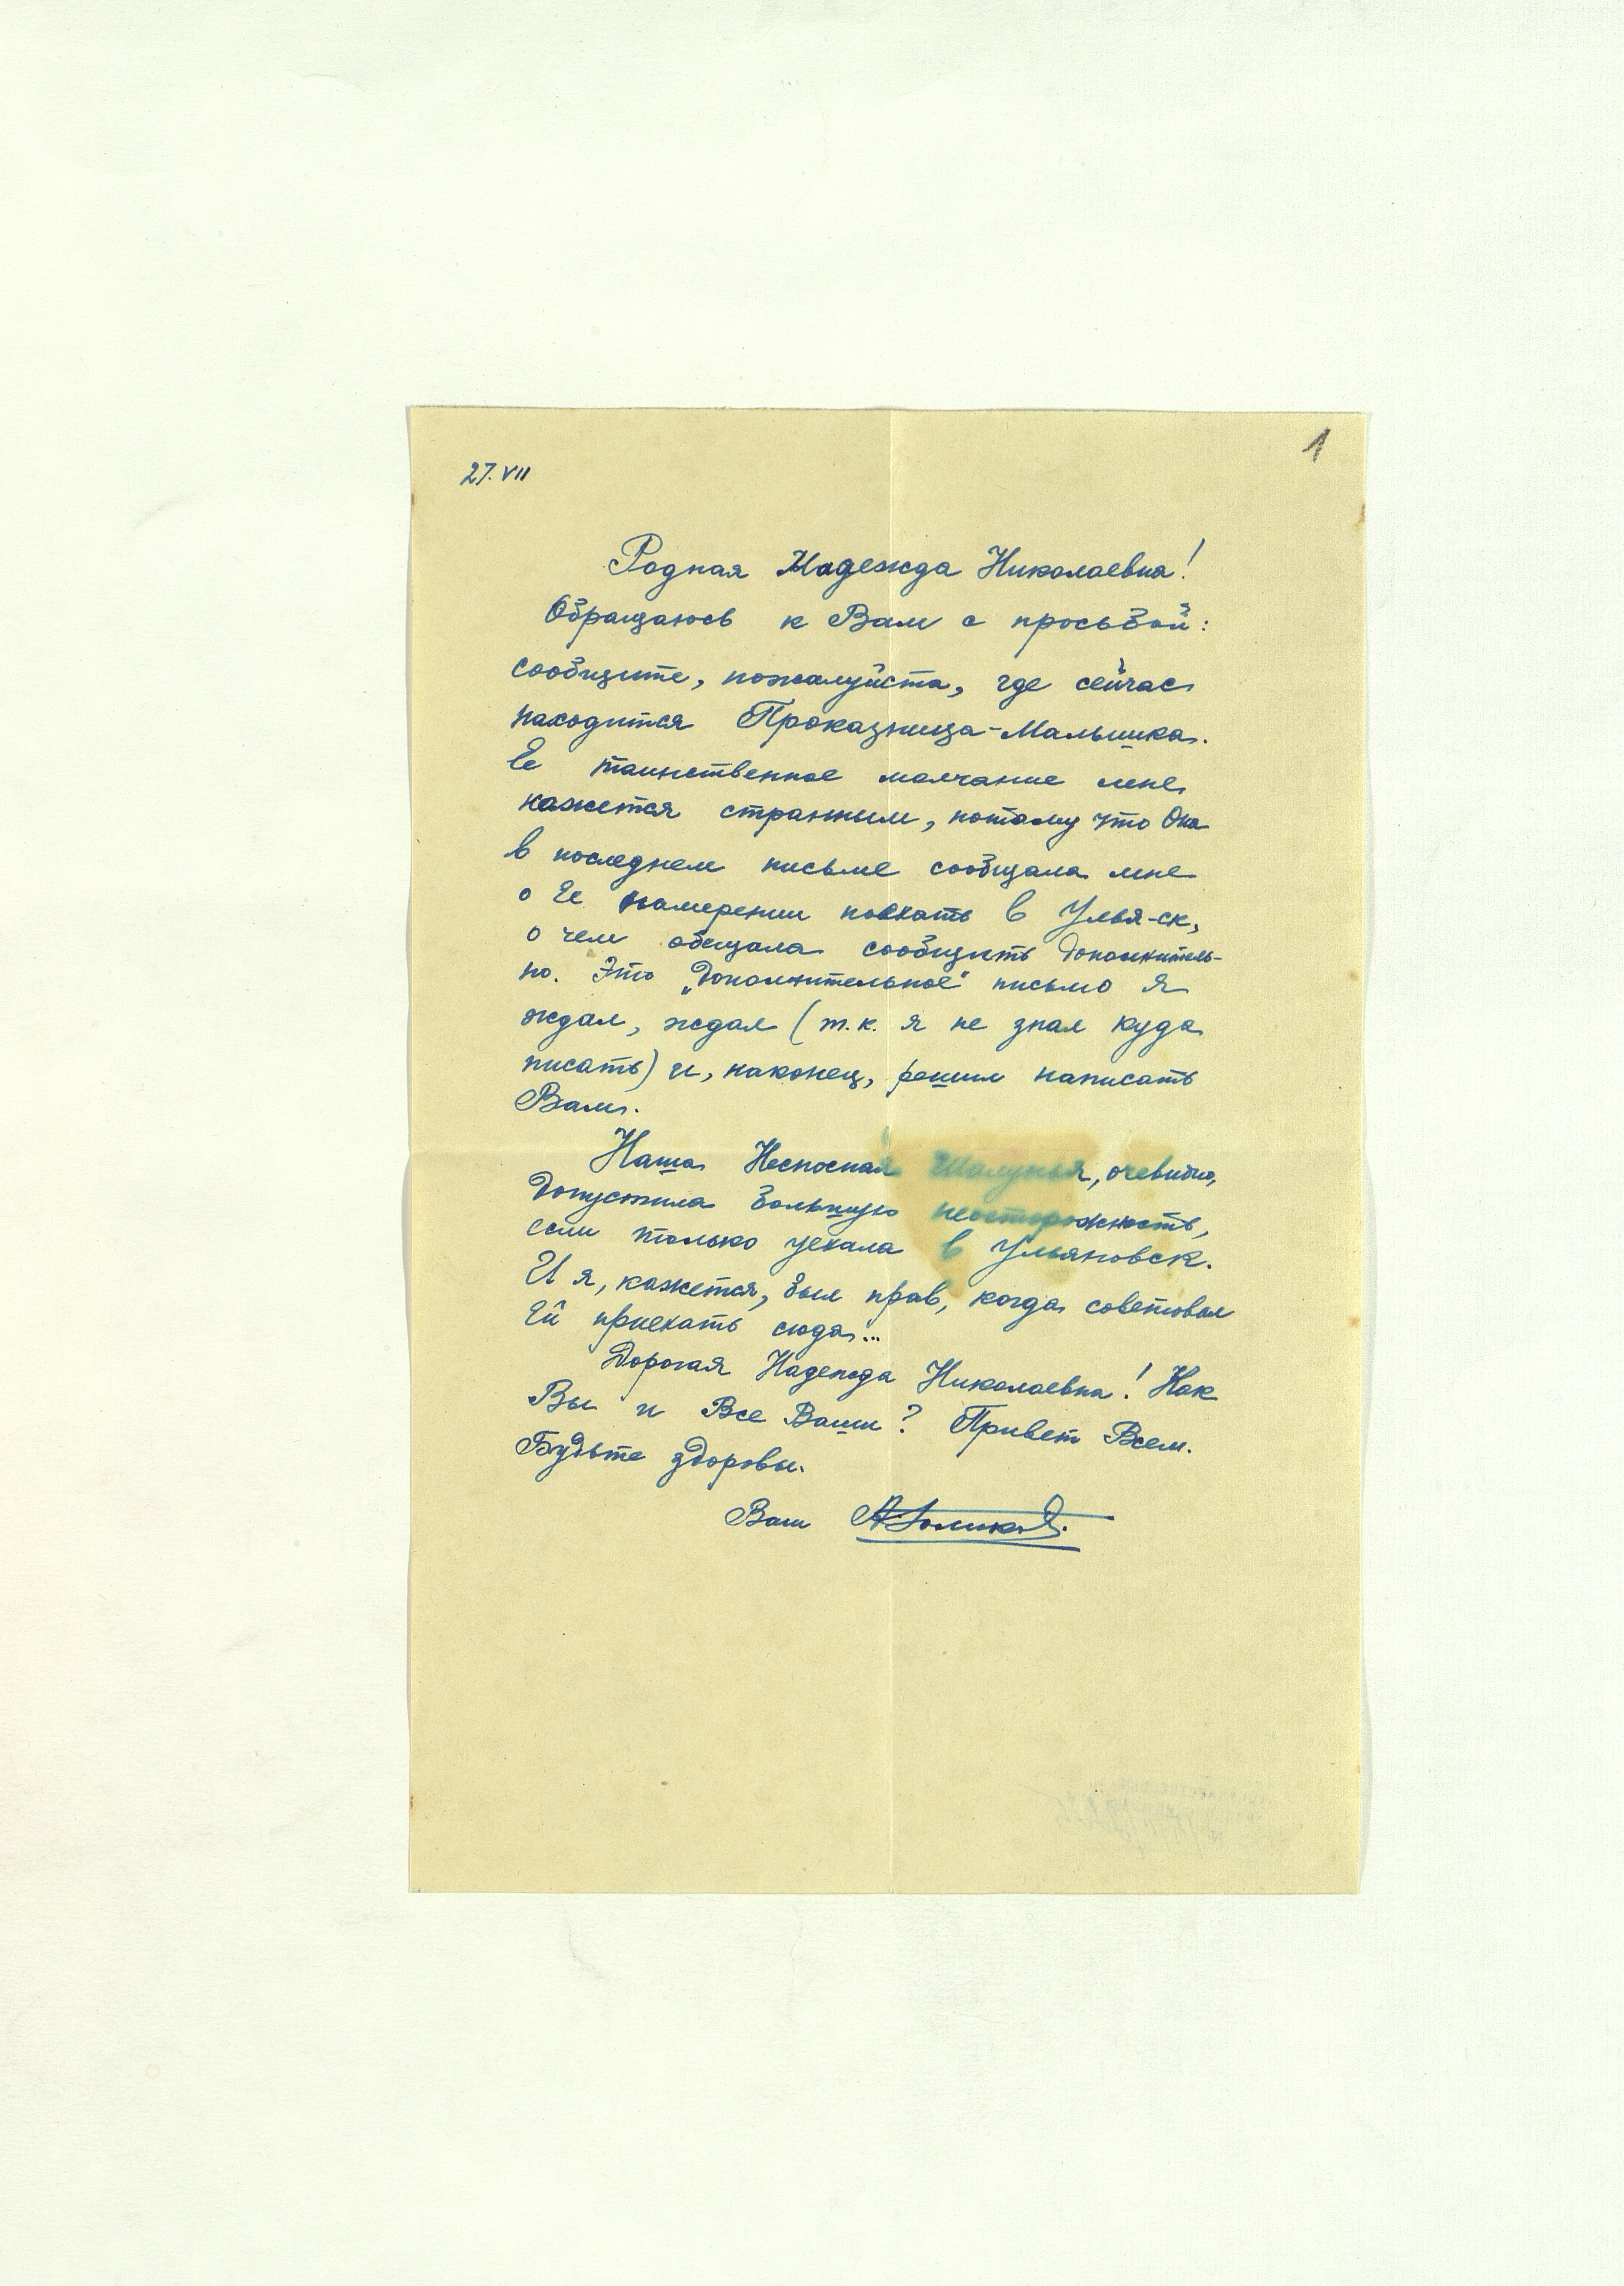 1
27.VII
Родная Надежда Николаевна!
Обращаюсь к Вам с просьбой:
сообщите, пожалуйста, где сейчас
находится Проказница-Малышка.
Ее таинственное молчание мне
кажется странным, потому что Она
в последнем письме сообщала мне
о Ее намерении поехать в Улья-ск,
о чем обещала сообщить дополнитель-
но. Это „дополнительное" письмо я
ждал, ждал (т.к. я не знал куда
писать) и, наконец, решил написать
Вам.
Наша Несносная Шалунья, очевидно,
допустила большую неосторожность,
если только уехала в Ульяновск.
И я, кажется, был прав, когда советовал
Ей приехать сюда...
Дорогая Надежда Николаевна! Как
Вы и Все Ваши? Привет Всем.
Будьте здоровы.
Ваш